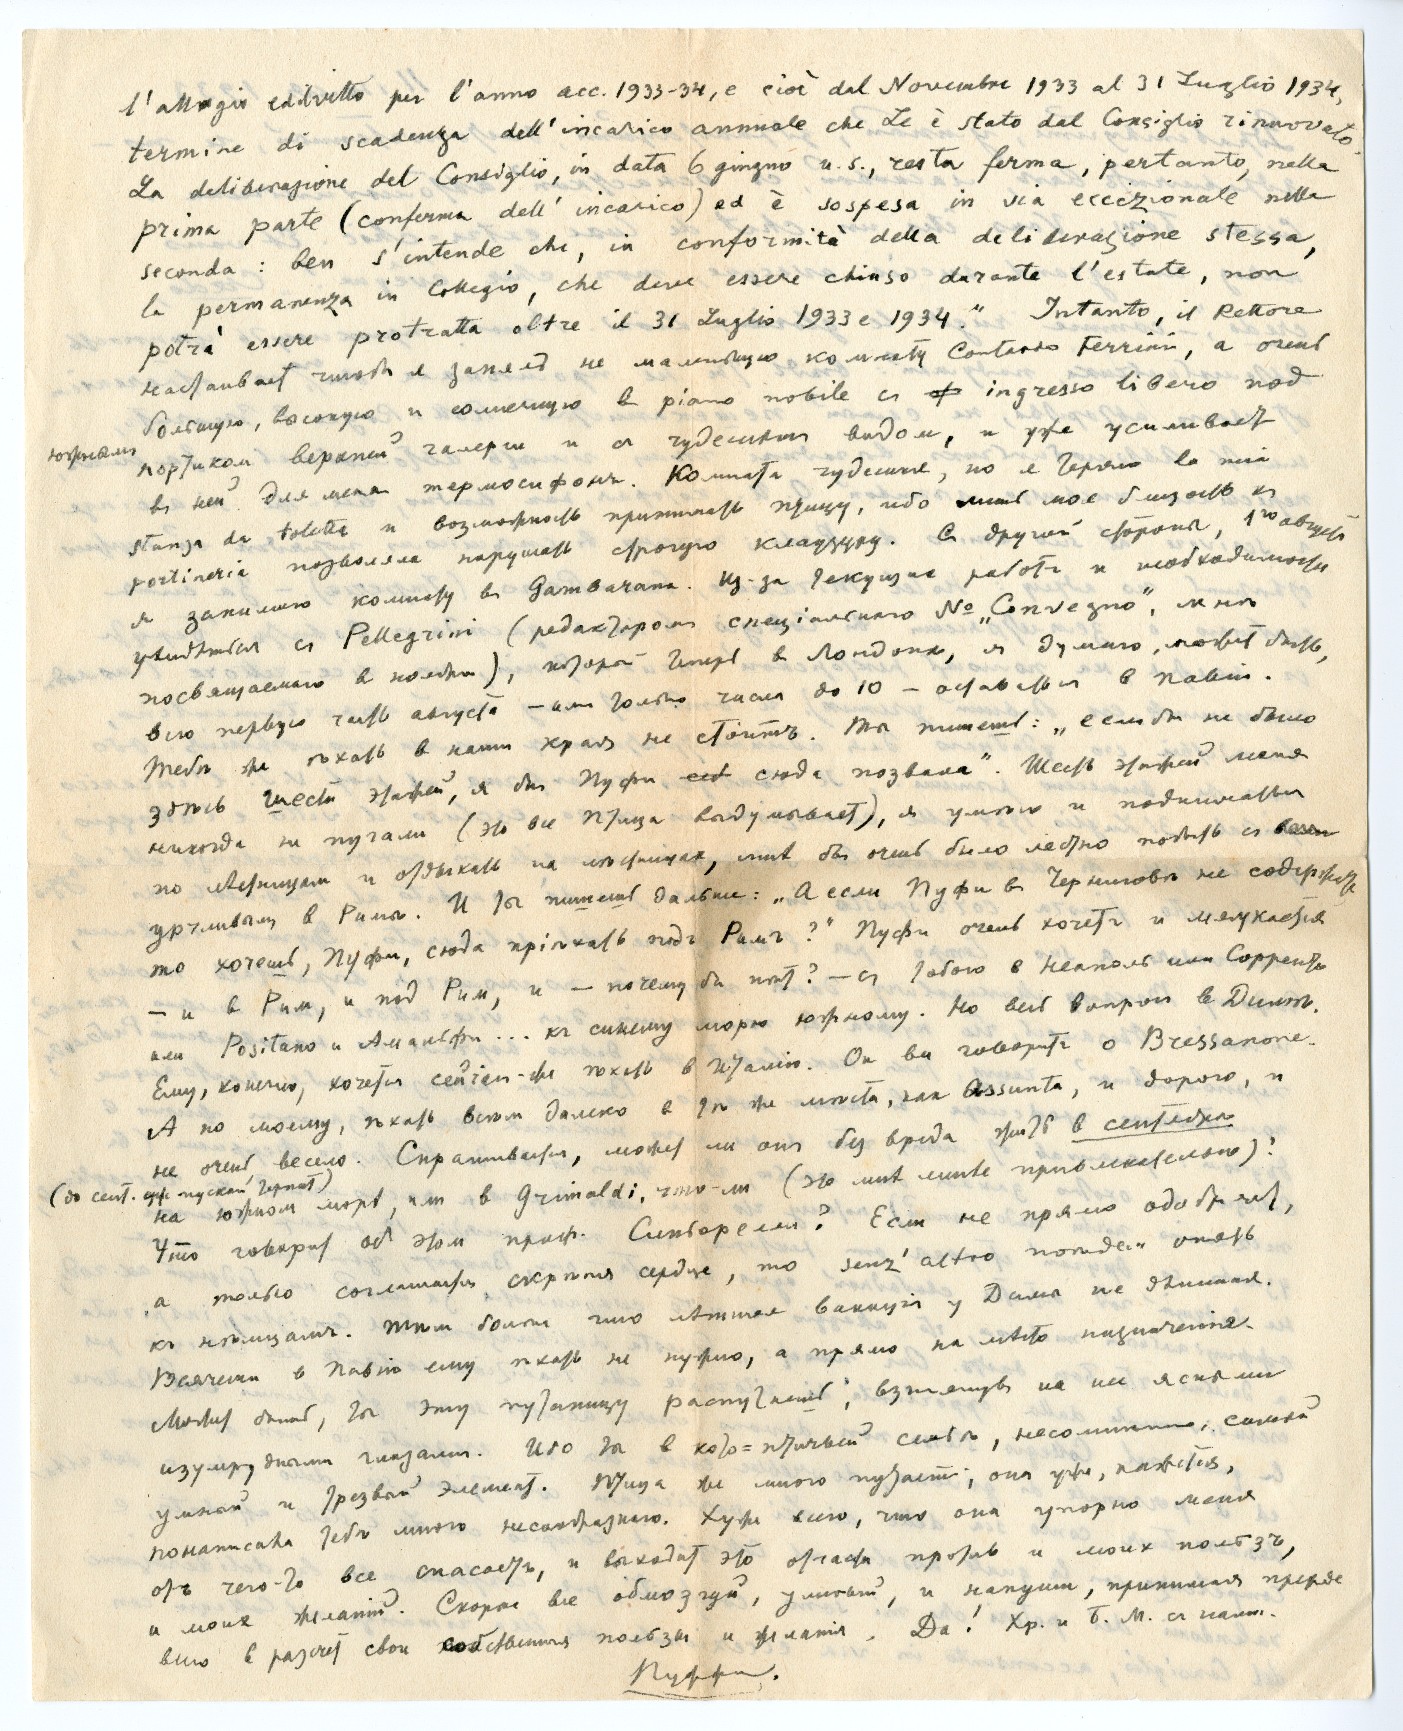 l'alloggio ed il vitto per l'anno acc. 1933-34, e cioè dal Novembre 1933 al 31 Luglio 1934,
termine di scadenza dell'incarico annuale che Le è stato dal Consiglio rinnovato.
La deliberazione del Consiglio, in data 6 giugno u.s., resta ferma, pertanto, nella
prima parte (conferma dell'incarico) ed è sospesa in via eccezionale nella
seconda: ben s'intende che, in conformità della deliberazione stessa,
la permanenza in Collegio, che deve essere chiuso durante l'estate, non
potrà essere protratta oltre il 31 Luglio 1933 e 1934." Intanto, il Rettore
настаивает чтобы я занялъ не маленькую комнату Contardo Ferrini, а очень
большую, высокую и солнечную в piano nobile съ ingresso libero под
южнымъ
портиком верхней галереи и съ чудеснымъ видом, и уже усиливает
въ ней для меня термосифонъ. Комната чудесная, но я теряю въ ней
stanza da toletta и возможность принимать птицу, ибо мне близость къ
portineria позволяла нарушать строгую клаузуру. Съ другой стороны, 1го августа
я занимаю комнату въ Gambarana. Из-за текущие работы и необходимости
увидѣться съ Pellegrini (редакторомъ спеціальнаго № „Convegno", мнѣ
посвящаемаго в ноябрѣ), который теперь в Лондонѣ, я думаю, может быть,
всю первую часть августа – или только числа до 10 – оставаться в Павіи.
Тебѣ же ѣхать в наши края не стоитъ. Ты пишешь: „если бы не было
здѣсь шести этажей, я бы Пуфи сюда позвала". Шесть этажей меня
никогда не пугали (это все Птица выдумывает), я умѣю и подниматься
по лѣстницам и отдыхать на лѣстницах, мнѣ бы очень было лестно побыть съ
урчливымъ в Римѣ. И ты пишешь дальше: „А если Пуфи въ Черниговѣ не содержать,
то хочешь, Пуфи, сюда пріѣхать подъ Римъ?" Пуфи очень хочетъ и мяукается
– и в Рим, и под Рим, и – почему бы нѣт? – съ тобою в Неаполь или Сорренто
или Positano и Амальфи... къ синему морю южному. Но весь вопросъ в Димѣ.
Ему, конечно, хочется сейчас-же ѣхать в Италію. Он все говоритъ о Bressanone.
А по моему, ѣхать всѣм далеко в тѣ же мѣста, как Assunta, и дорого, и
не очень весело. Спрашивается, может ли онъ без вреда жить в сентябрѣ
(до сент. уже пускай терпит)
на южном морѣ, или в Grimaldi, что-ли (это мнѣ менѣе привлекательно)?
Что говорит об этом проф. Синьорелли? Если не прямо одобряет,
а только соглашается, скрѣпя сердце, то senz'altro поѣдем опять
къ нѣмцамъ. Тѣм болѣе что лѣтнія ваканціи у Димы не длинная.
Всячески в Павію ему ѣхать не нужно, а прямо на мѣсто назначенія.
Может быть, ты эту путаницу распутаешь, взглянувъ на нее ясными
изумрудными глазами. Ибо ты в кото=птичьей семьѣ, несомнѣнно, самый
умный и трезвый элемент. Птица же много путает; она уже, кажется,
понаписала тебѣ много несообразнаго. Хуже всего, что она упорно меня
отъ чего-то все спасаетъ, и выходит это отчасти против и моих пользъ,
и моих желаній. Скорѣе все обмозгуй, умный, и напиши, принимая прежде
всего в разсчет свои собственныя пользы и желанія. Да! Хр. и Б. М. съ нами.
Пуффи.